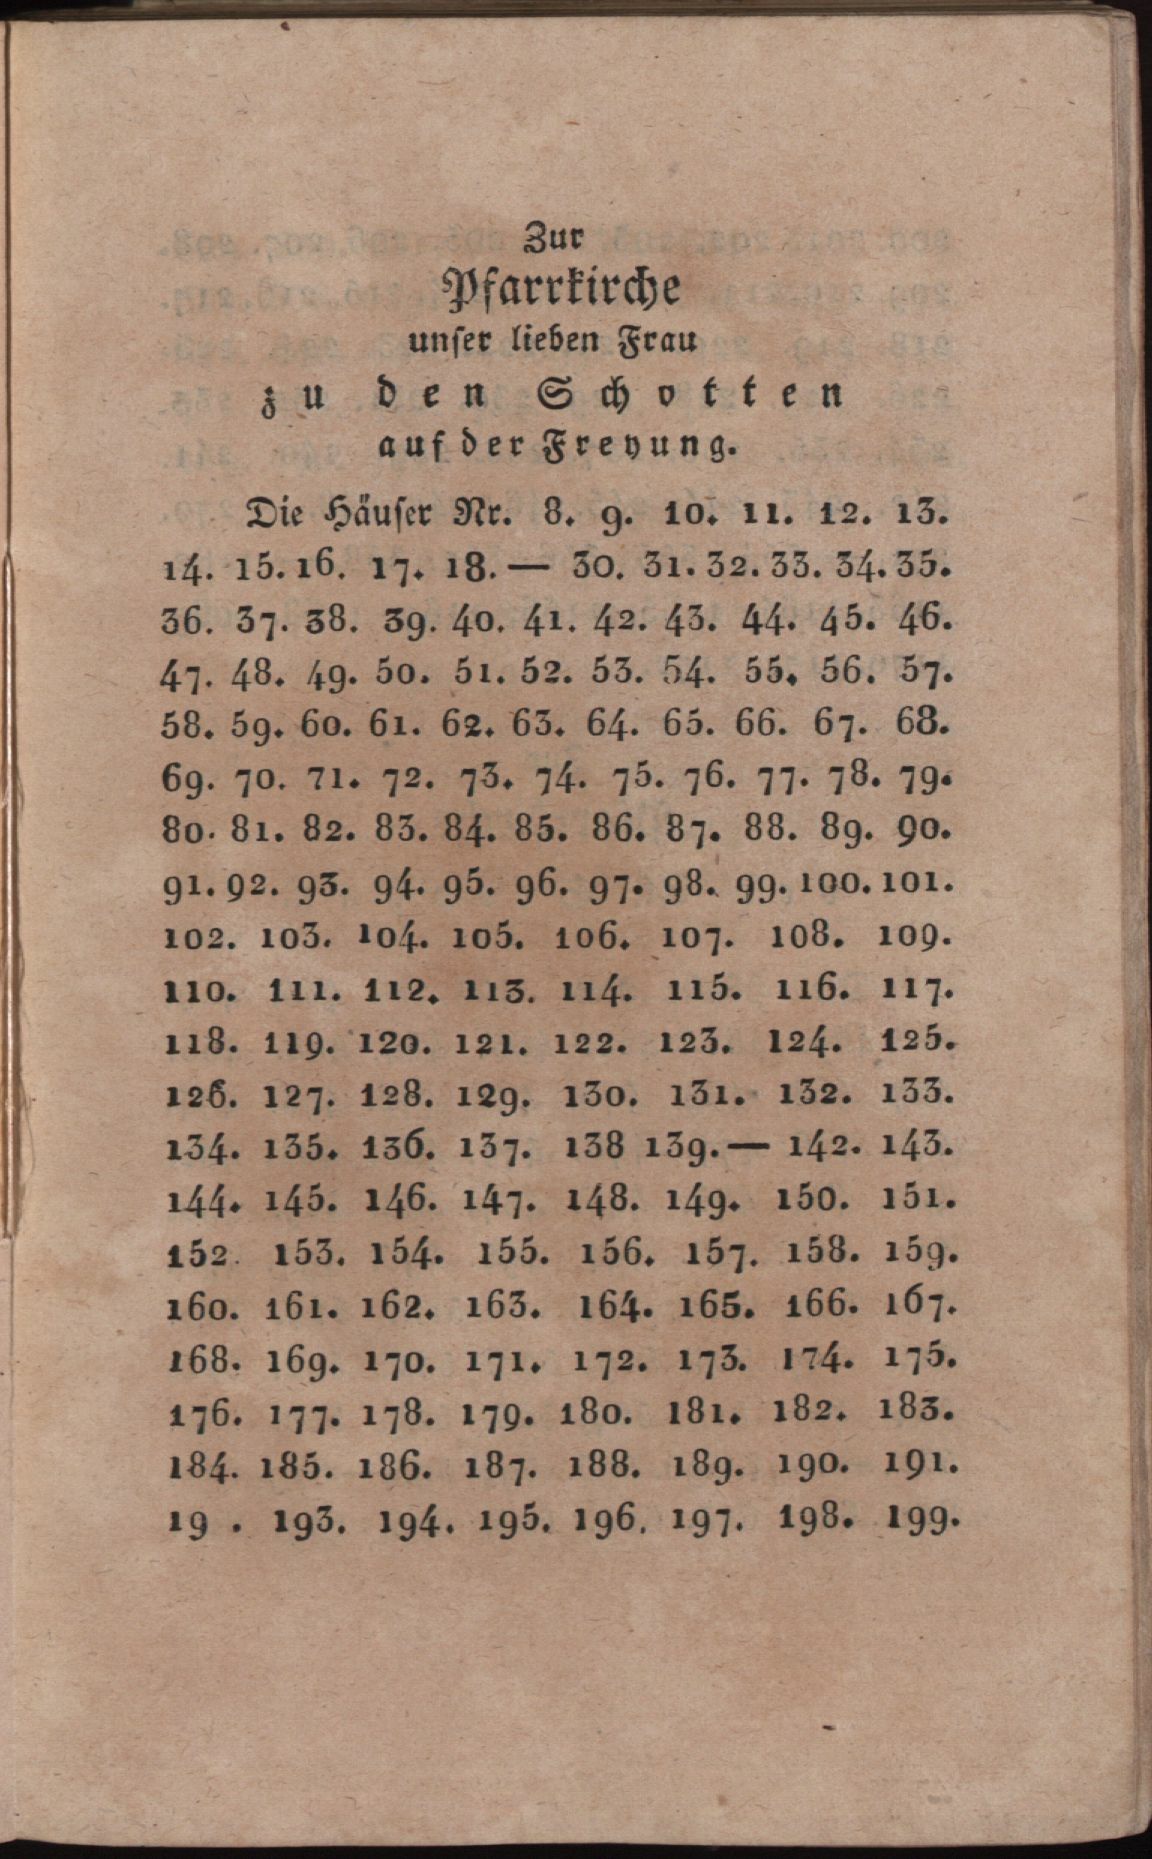 Zur
Pfarrkirche
unser lieben Frau
zu den Schotten
auf der Freyung.
Die Häuser Nr. 8. 9. 10. 11. 12. 13.
14. 15. 16. 17. 18. — 30. 31. 32. 33. 34. 35.
36. 37. 38. 39. 40. 41. 42. 43. 44. 45. 46.
47. 48. 49. 50. 51. 52. 53. 54. 55. 56. 57.
58. 59. 60. 61. 62. 63. 64. 65. 66. 67. 68.
69. 70. 71. 72. 73. 74. 75. 76. 77. 78. 79.
80. 81. 82. 83. 84. 85. 86. 87. 88. 89. 90.
91. 92. 93. 94. 95. 96. 97. 98. 99. 100. 101.
102. 103. 104. 105. 106. 107. 108. 109.
110. 111. 112. 113. 114. 115. 116. 117.
118. 119. 120. 121. 122. 123. 124. 125.
126. 127. 128. 129. 130. 131. 132. 133.
134. 135. 136. 137. 138 139. — 142. 143.
144. 145. 146. 147. 148. 149. 150. 151.
152. 153. 154. 155. 156. 157. 158. 159.
160. 161. 162. 163. 164. 165. 166. 167.
168. 169. 170. 171. 172. 173. 174. 175.
176. 177. 178. 179. 180. 181. 182. 183.
184. 185. 186. 187. 188. 189. 190. 191.
19 . 193. 194. 195. 196. 197. 198. 199.